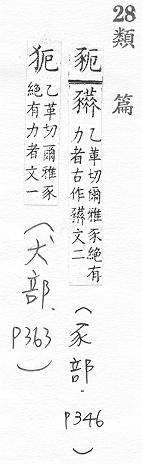 28
類篇
豟 䝈 乙革切爾雅豕絕有
力者古作䝈文二
(豕部.
P346)
㹠 乙革切爾雅豕
絕有力者文一
(犬部.
P363)